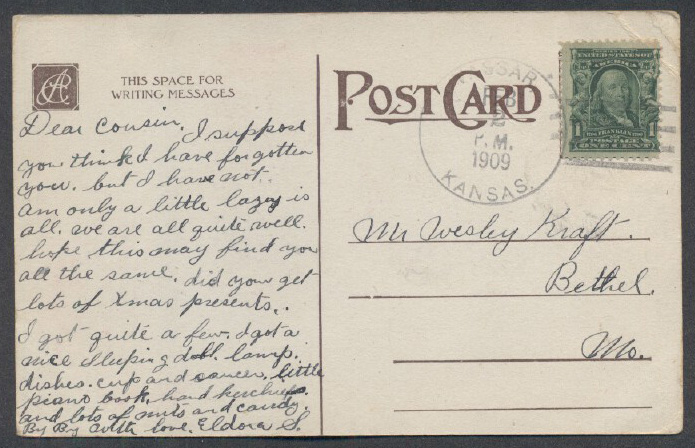 THIS SPACE FOR
WRITING MESSAGES
POST CARD
SSAR
FEB
2
P.M.
1909
KANSAS.
UNITED STATES OF
AMERICA
1 FRANKLIN 1
POSTAGE
ONE CENT
Dear Cousin. I suppose
you think I have forgotten
you. but I have not.
am only a little lazy is
all. we are all quite well.
hope this may find you
all the same. did you get
lots of Xmas presents..
I got quite a few. I got a
nice sleeping doll. lamp.
dishes. cup and saucer. little
piano book, hand kerchiefs
and lots of nuts and candy
By By with love. Eldora S.
Mr Wesley Kraft.
Bethel.
Mo.